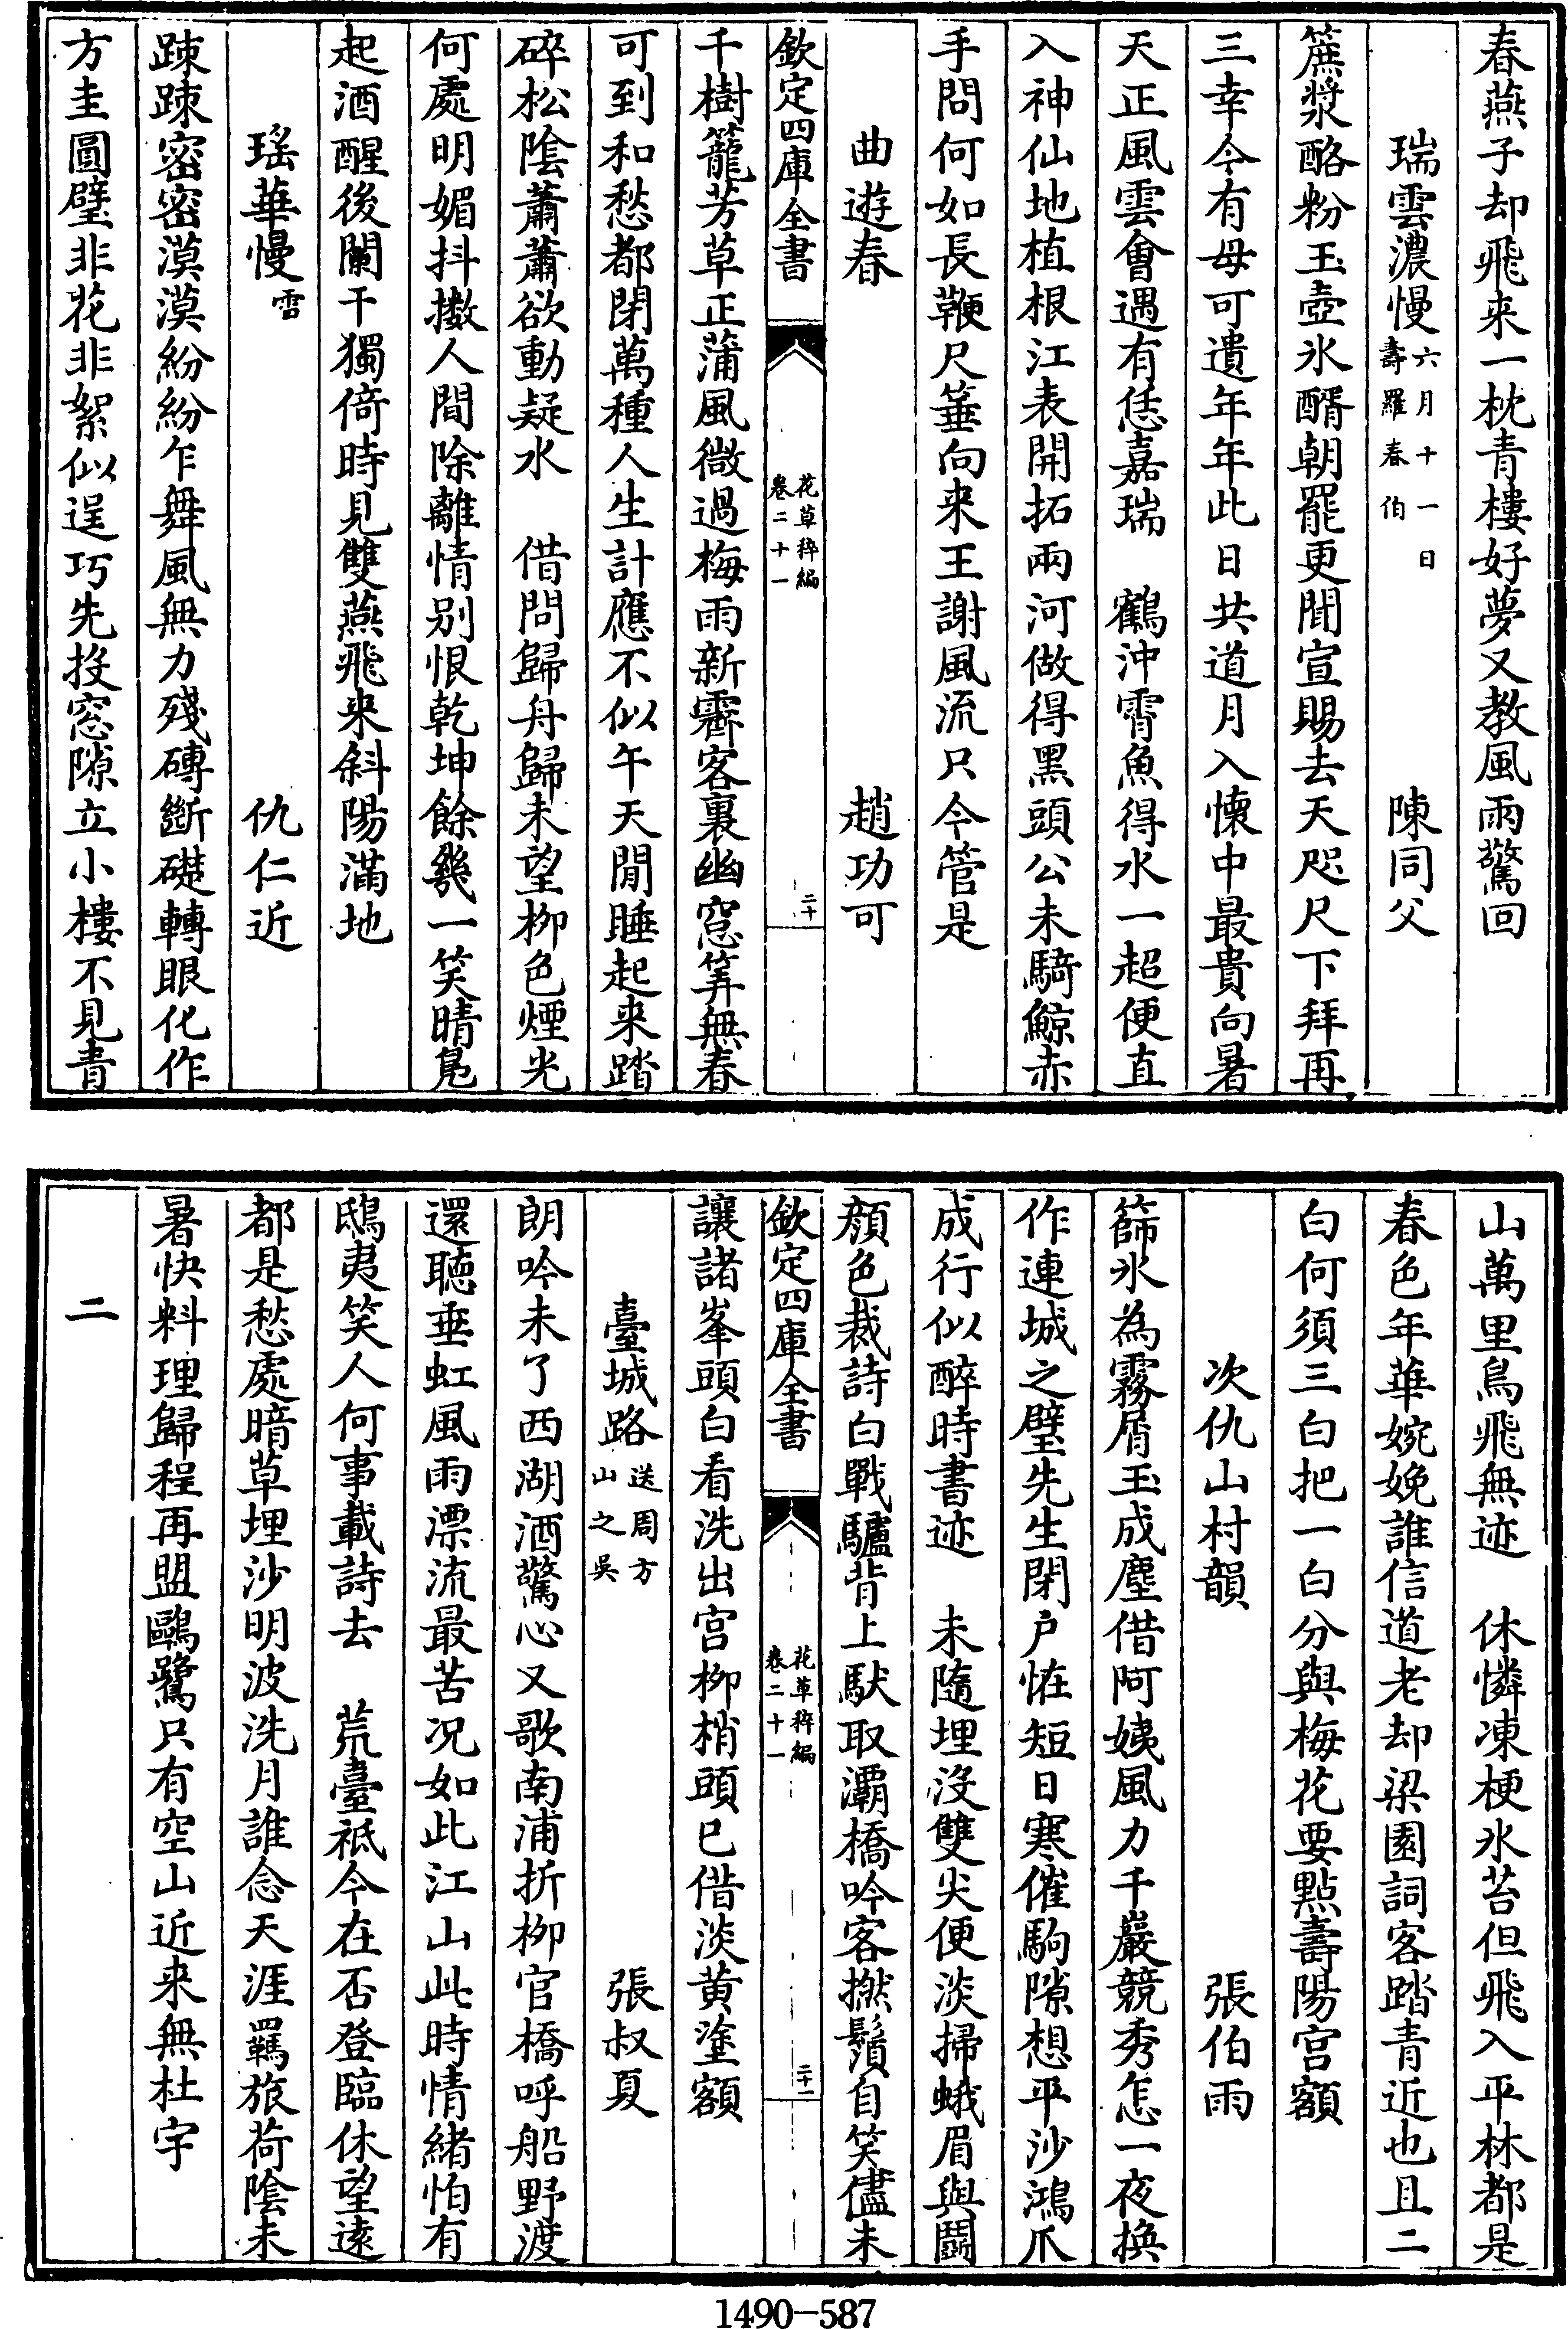 春燕子却飛来一枕青樓好夢又教風雨驚回
瑞雲濃慢六月十一日壽羅春伯 陳同父
蔗漿酪粉玉壺氷醑朝罷更聞宣賜去天咫尺下拜再
三幸今有母可遺年年此日共道月入懷中最貴向暑
天正風雲會遇有恁嘉瑞 鶴沖霄魚得水一超便直
入神仙地植根江表開拓兩河做得黑頭公未騎鯨赤
手問何如長鞭尺箠向来王謝風流只今管是
曲遊春 趙功可
欽定四庫全書 花草稡編卷二十一 二十
千樹籠芳草正蒲風微過梅雨新霽客裏幽窓筭無春
可到和愁都閉萬種人生計應不似午天閒睡起来踏
碎松隂蕭蕭欲動疑水 借問歸舟歸未望柳色煙光
何處明媚抖擻人間除離情别恨乾坤餘幾一笑晴鳬
起酒醒後闌干獨倚時見雙燕飛来斜陽滿地
瑤華慢雪 仇仁近
踈踈密密漠漠紛紛乍舞風無力殘磚斷礎轉眼化作
方圭圓璧非花非絮似逞巧先投窓隙立小樓不見青
山萬里鳥飛無迹 休憐凍梗氷苔但飛入平林都是
春色年華婉娩誰信道老却梁園詞客踏青近也且二
白何須三白把一白分與梅花要點壽陽宫額
次仇山村韻 張伯雨
篩氷為霧屑玉成塵借阿姨風力千巖競秀怎一夜換
作連城之璧先生閉户恠短日寒催駒隙想平沙鴻爪
成行似醉時書迹 未隨埋没雙尖便淡掃蛾眉與鬬
顔色裁詩白戰驢背上馱取灞橋吟客撚鬚自笑儘未
讓諸峯頭白看洗出宫柳梢頭已借淡黄塗額
欽定四庫全書 花草稡編卷二十一 二十一
臺城路送周方山之吳 張叔夏
朗吟未了西湖酒驚心又歌南浦折柳官橋呼船野渡
還聽垂虹風雨漂流最苦况如此江山此時情緒怕有
鴟夷笑人何事載詩去 荒臺祇今在否登臨休望遠
都是愁處暗草埋沙明波洗月誰念天涯羈旅荷隂未
暑快料理歸程再盟鷗鷺只有空山近来無杜宇
二
1490—587